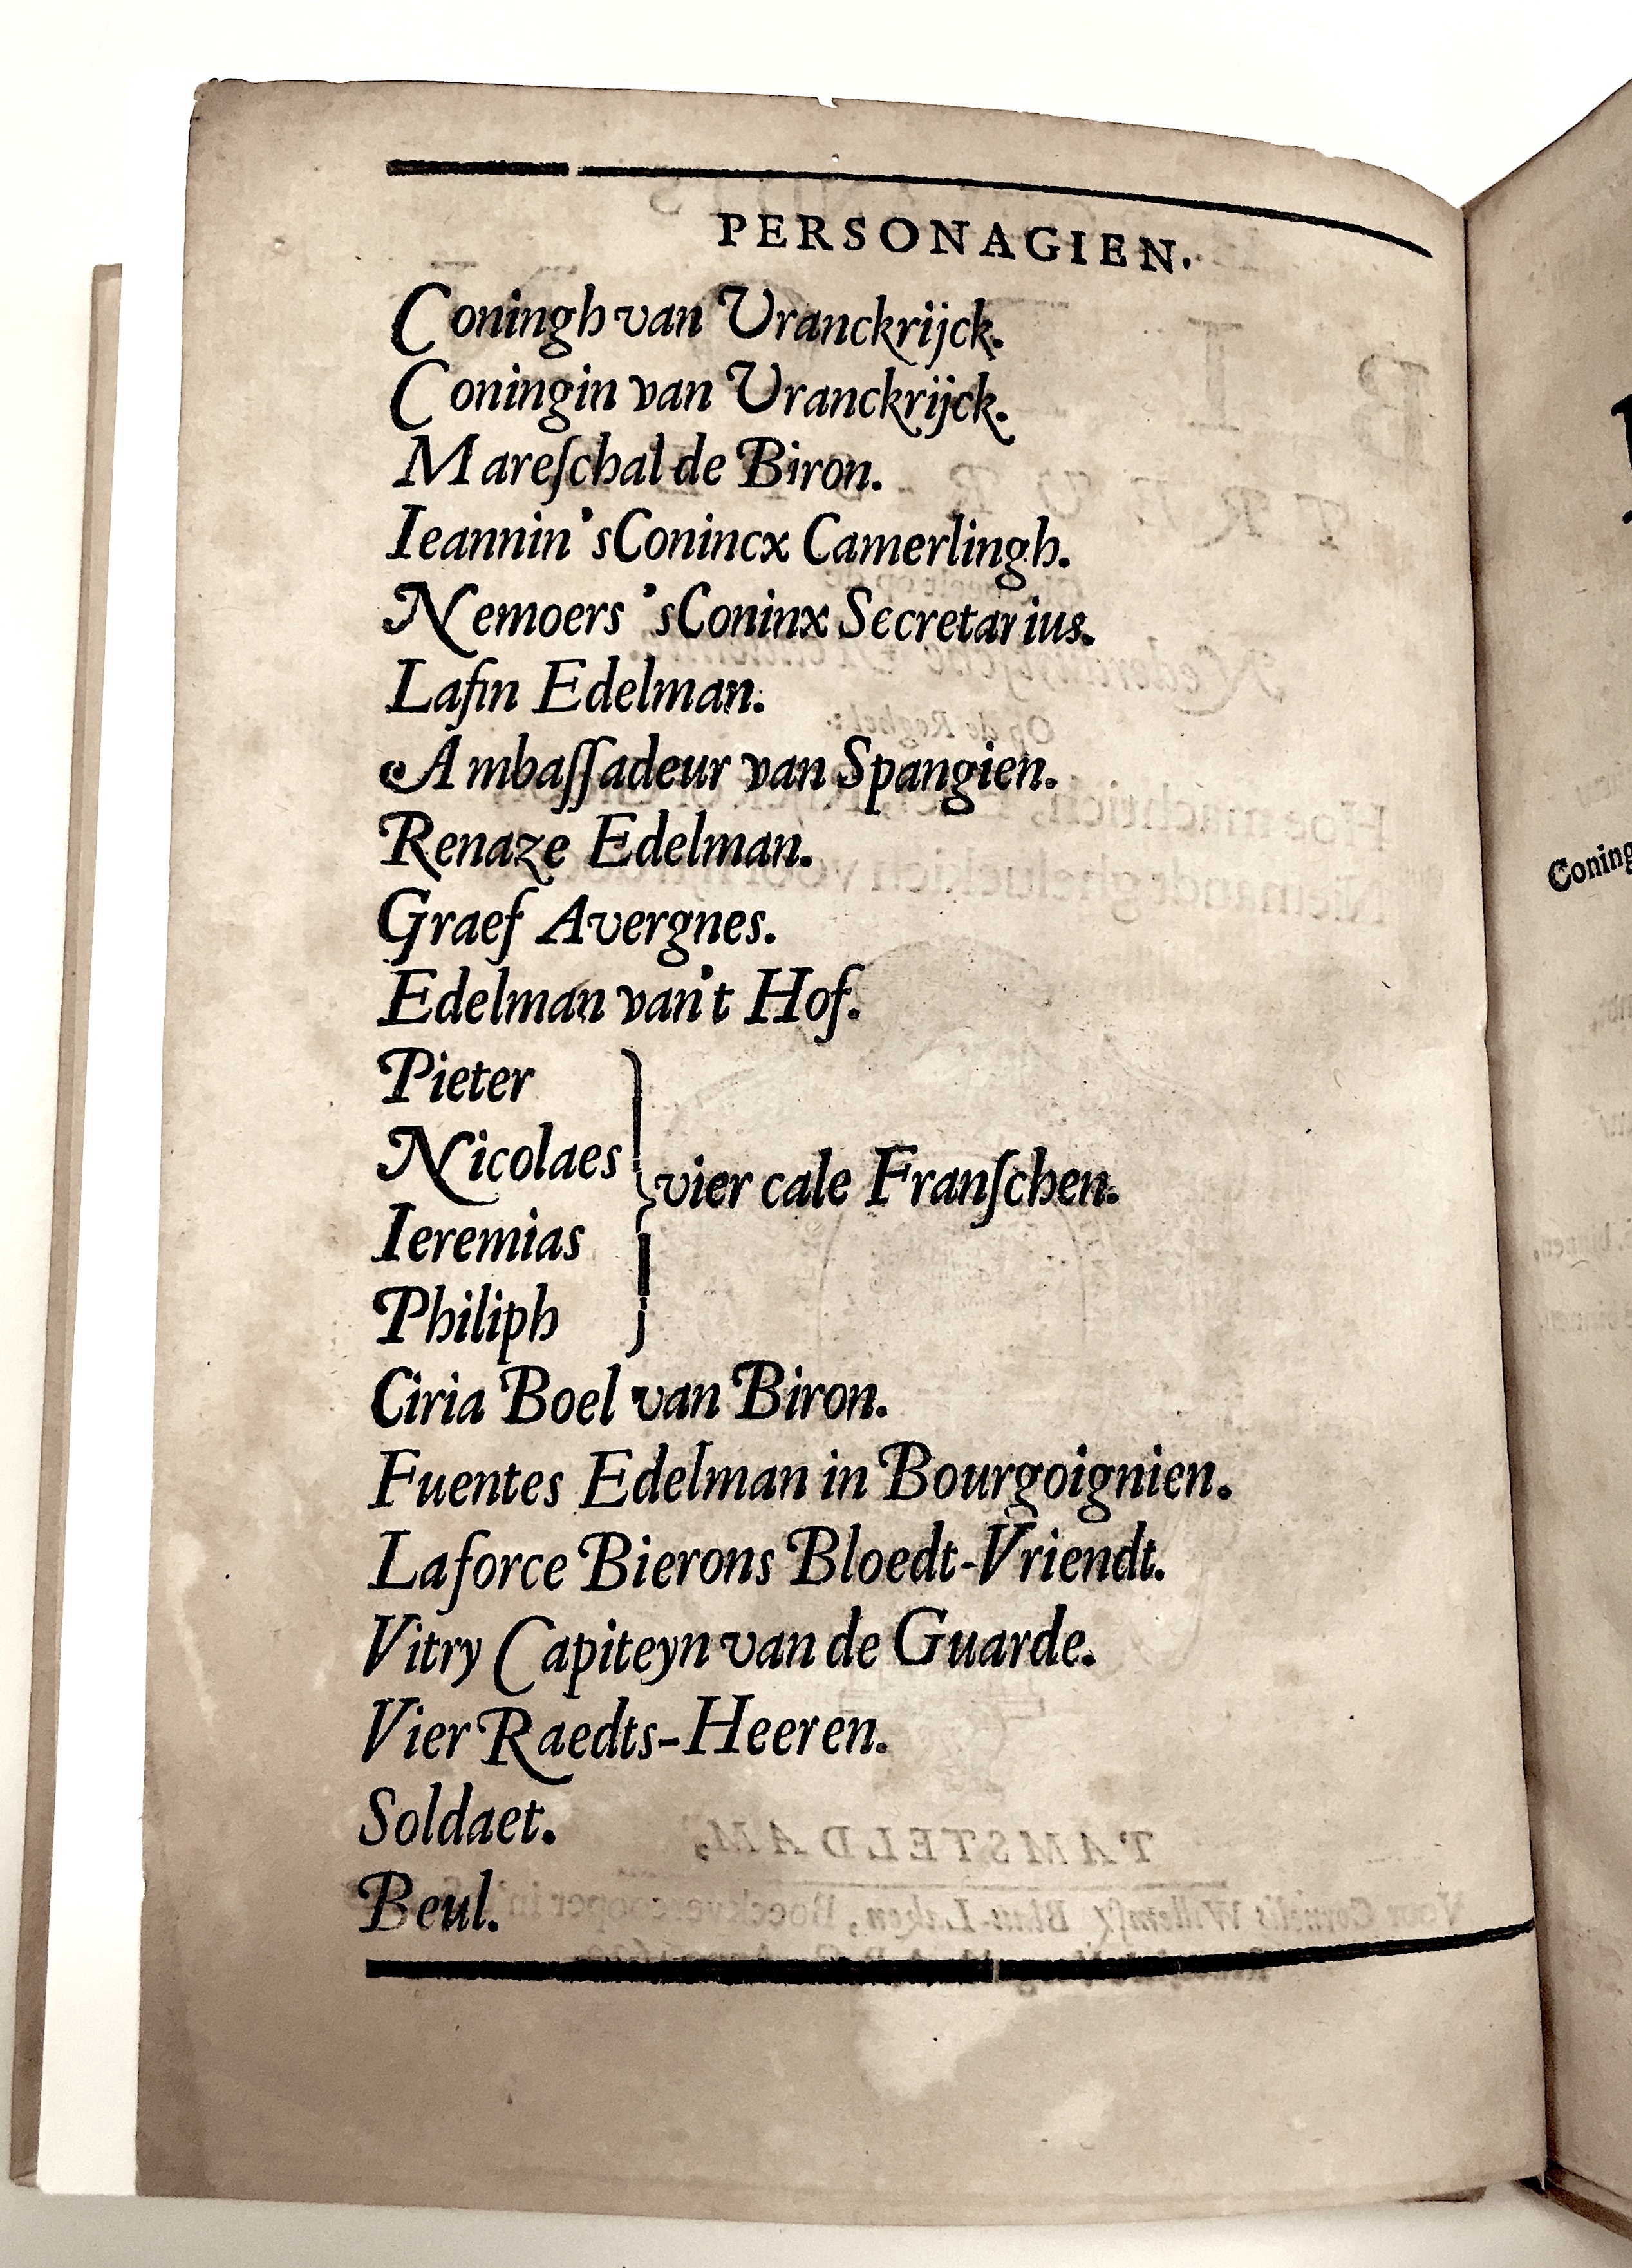 PERSONAGIEN.
Coningh van Vranckrijck.
Coningin van Vranckrijck.
Mareſchal de Biron.
Ieannin 'sConincx Camerlingh.
Nemoers 'sConinx Secretarius.
Lafin Edelman.
Ambaſſadeur van Spangien.
Renaze Edelman.
Graef Avergnes.
Edelman van't Hof.
Pieter
Nicolaes
vier cale Franſchen.
Ieremias
Philiph
Ciria Boel van Biron.
Fuentes Edelman in Bourgoignien.
Laforce Bierons Bloedt-Vriendt.
Vitry Capiteyn van de Guarde.
Vier Raedts-Heeren.
Soldaet.
Beul.
Coning